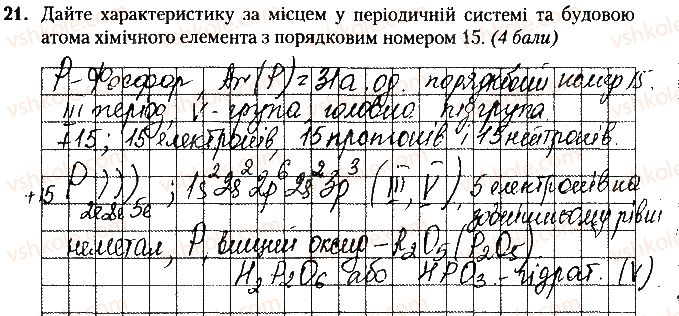 21. Дайте характеристику за місцем у періодичній системі та будовою
атома хімічного елемента з порядковим номером 15. (4 бали)
P - Фосфор, Ar(P) = 31 а. од. порядковий номер 15.
III період, V - група, головна підгрупа
+15; 15 електронів, 15 протонів і 15 нейтронів.
+15 P ))) ; 1s² 2s² 2p⁶ 2s² 3p³ (III, V), 5 електронів на
2e 8e 5e зовнішньому рівні
неметал, P, вищий оксид - R₂O₅ (P₂O₅)
H₂P₂O₆ або HPO₃ - гідрат. (V)